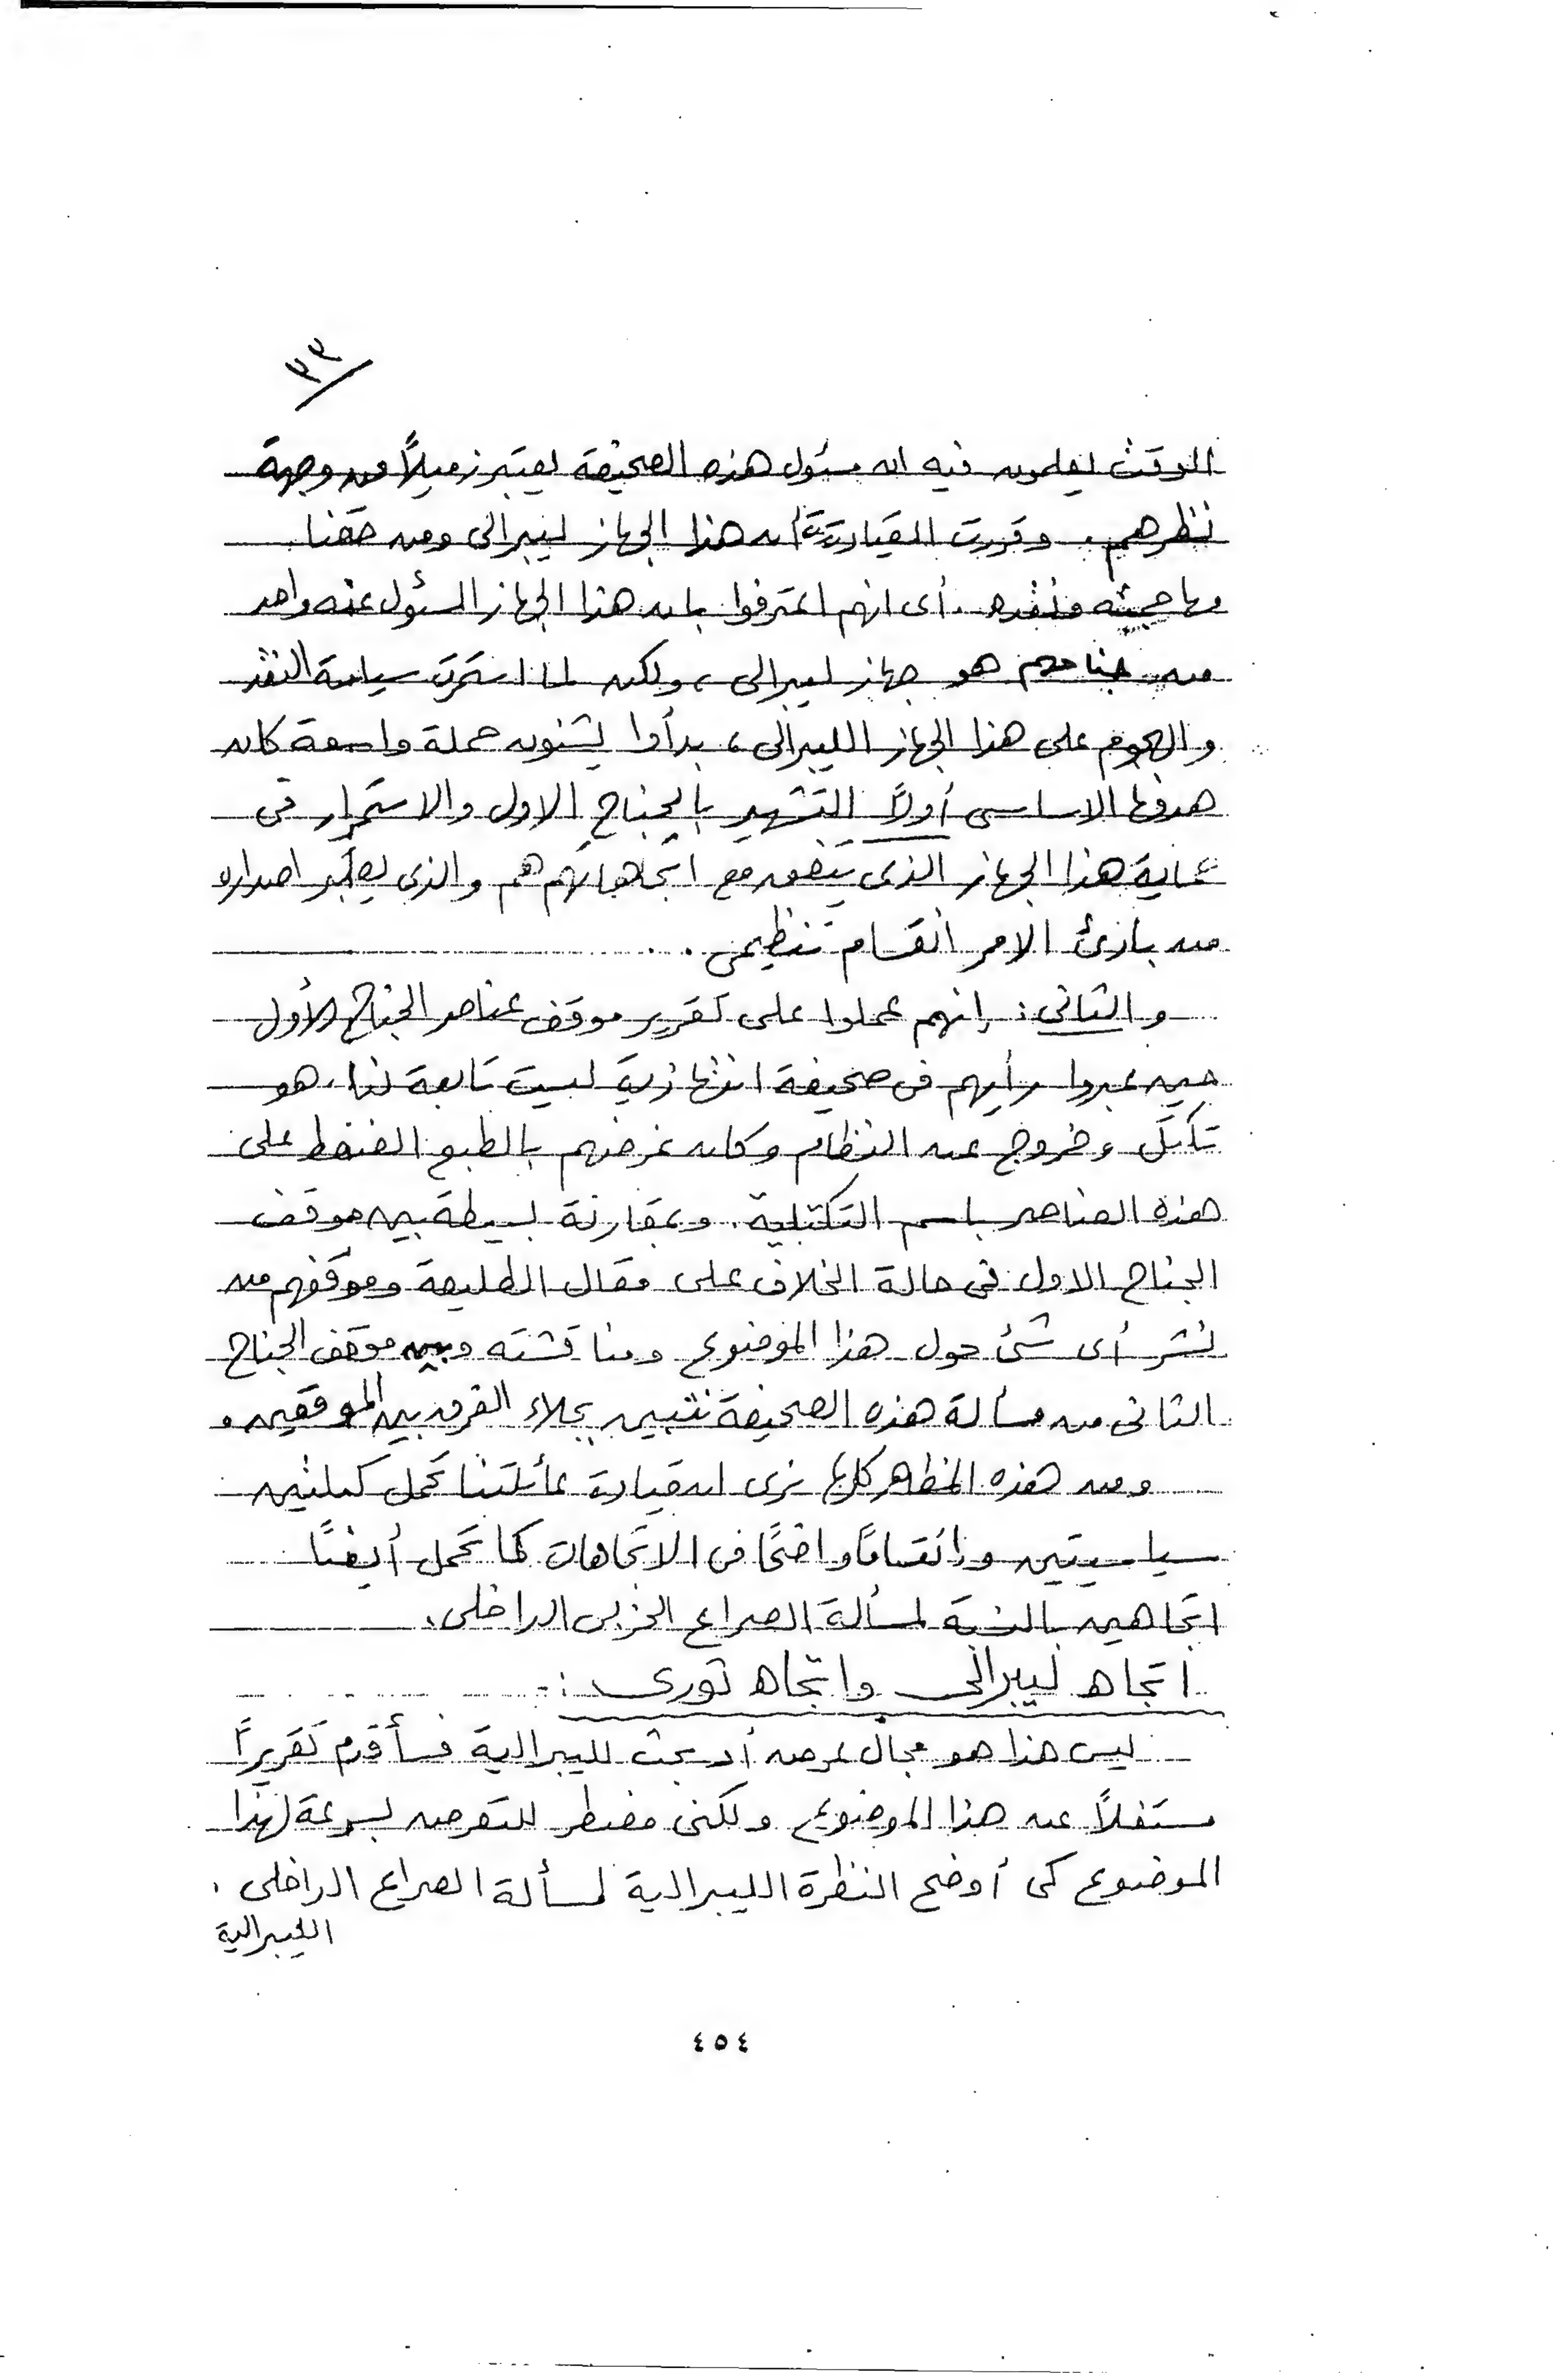 ٣٣
الوقت يعلمون فيه ان مسئول هذه الصحيفة يعتبر زميلاً من وجهة
نظرهم . وقررت القيادة أن هذا الجهاز ليبرالى ومن حقنا
مهاجمته ونقده . أى انهم اعترفوا بان هذا الجهاز المسئول عنه واحد
من جناحهم هو جهاز ليبرالى ، ولكن لما استمرت سياسة النقد
والهجوم على هذا الجهاز الليبرالى ، بدأوا يشنون حملة واسعة كان
هدفها الاساسى أولاً التشهير بالجناح الاول والاستمرار فى
حماية هذا الجهاز الذى يتفق مع اتجاهاتهم هم والذى يعتبر اصداره
من بادئ الامر انقسام تنظيمى .
والثانى : إنهم عملوا على تقرير موقف عناصر الجناح الأول
حين عبروا رأيهم فى صحيفة انتهازية ليست تابعة لنا ، هو
تكتل وخروج عن النظام وكان غرضهم بالطبع الضغط على
هذه العناصر باسم التكتلية . وبمقارنة بسيطة بين موقف
الجناح الاول فى حالة الخلاف على مقال الطليعة وموقفهم من
نشر أى شئ حول هذا الموضوع ومناقشته وبين موقف الجناح
الثانى من مسألة هذه الصحيفة نتبين بجلاء الفرق بين الموقفين .
ومن هذه المظاهر كلها نرى ان قيادة عائلتنا تحمل كتلتين
سياسيتين وانقساماً واضحًا فى الاتجاهات كما تحمل أيضًا
اتجاهين بالنسبة لمسألة الصراع الحزبى الداخلى .
اتجاه ليبرالى واتجاه ثورى :-
ليس هذا هو مجال عرض أو بحث لليبرالية فسأقدم تقريراً
مستقلاً عن هذا الموضوع ولكنى مضطر للتعرض بسرعة لهذا
الموضوع كى أوضح النظرة الليبرالية لمسألة الصراع الداخلى .
الليبرالية
٤٥٤